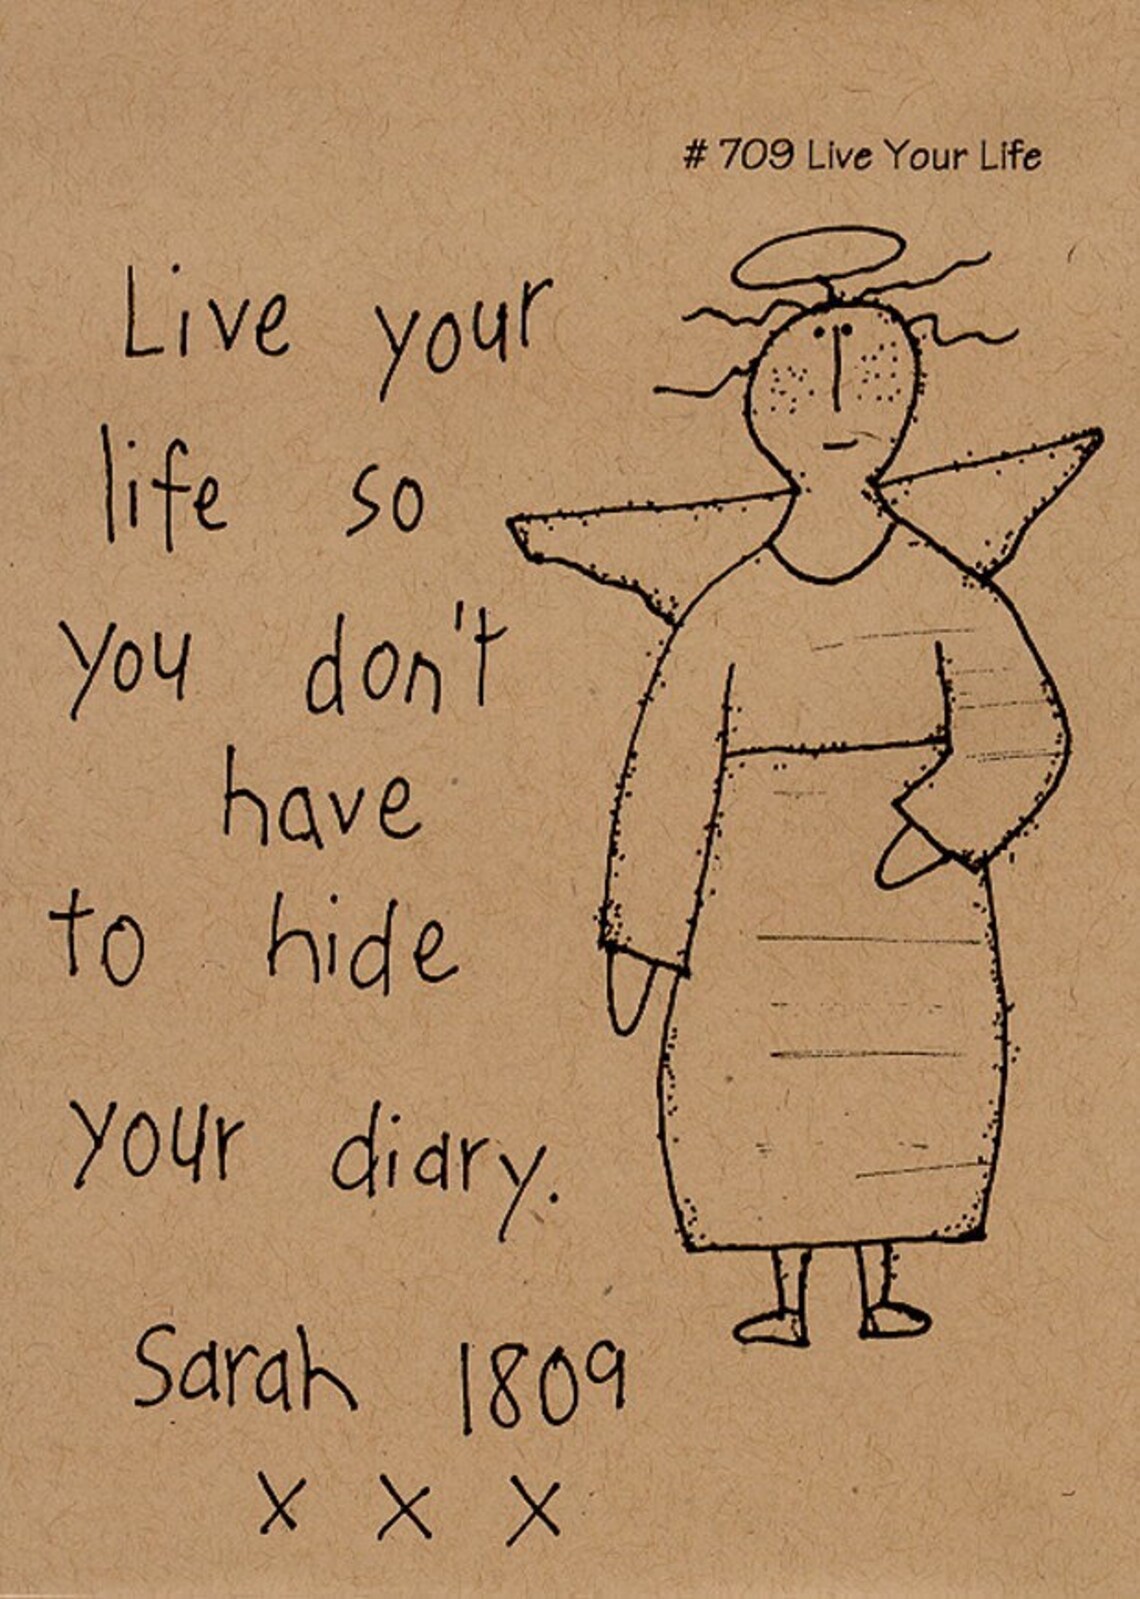 # 709 Live Your Life
Live your
life so
you don't
have
to hide
your diary.
Sarah 1809
x x x